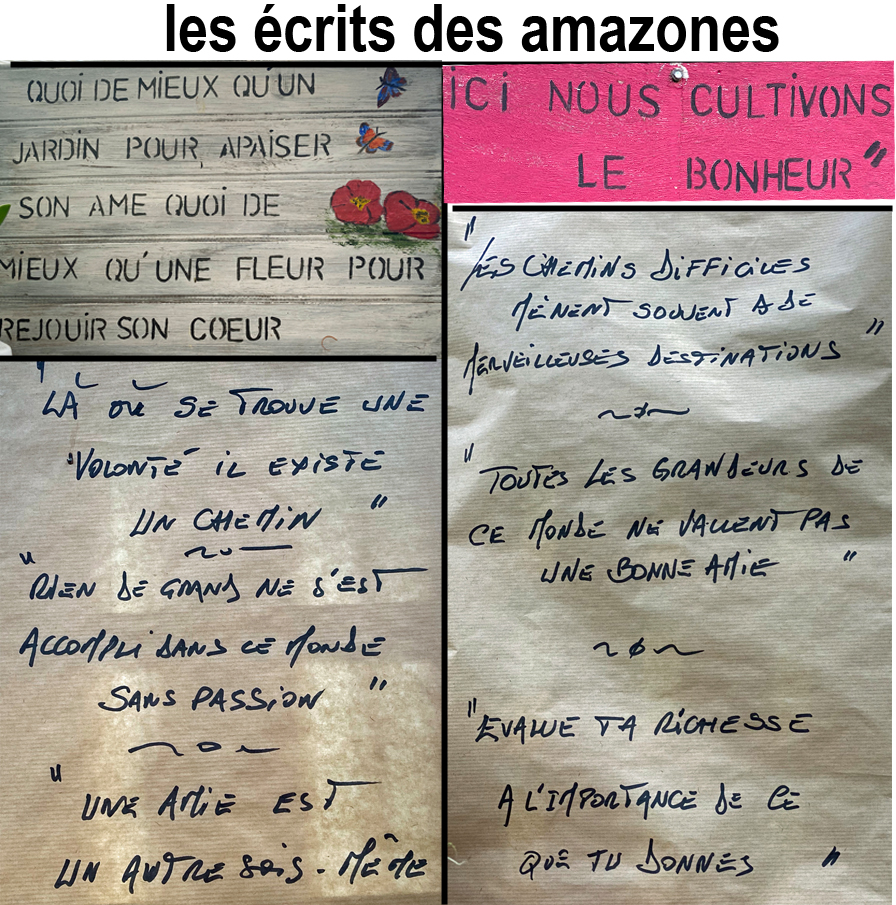 les écrits des amazones
QUOI DE MIEUX QU'UN
JARDIN POUR APAISER
SON AME QUOI DE
MIEUX QU'UNE FLEUR POUR
REJOUIR SON COEUR
" LÀ OÙ SE TROUVE UNE
"VOLONTÉ" IL EXISTE
UN CHEMIN "
" RIEN DE GRAND NE S'EST
ACCOMPLI DANS CE MONDE
SANS PASSION "
" UNE AMIE EST
UN AUTRE SOIS-MÊME
ICI NOUS CULTIVONS
LE BONHEUR"
" LES CHEMINS DIFFICILES
MÈNENT SOUVENT A DE
MERVEILLEUSES DESTINATIONS "
" TOUTES LES GRANDEURS DE
CE MONDE NE VALLENT PAS
UNE BONNE AMIE "
" EVALUE TA RICHESSE
A L'IMPORTANCE DE CE
QUE TU DONNES "